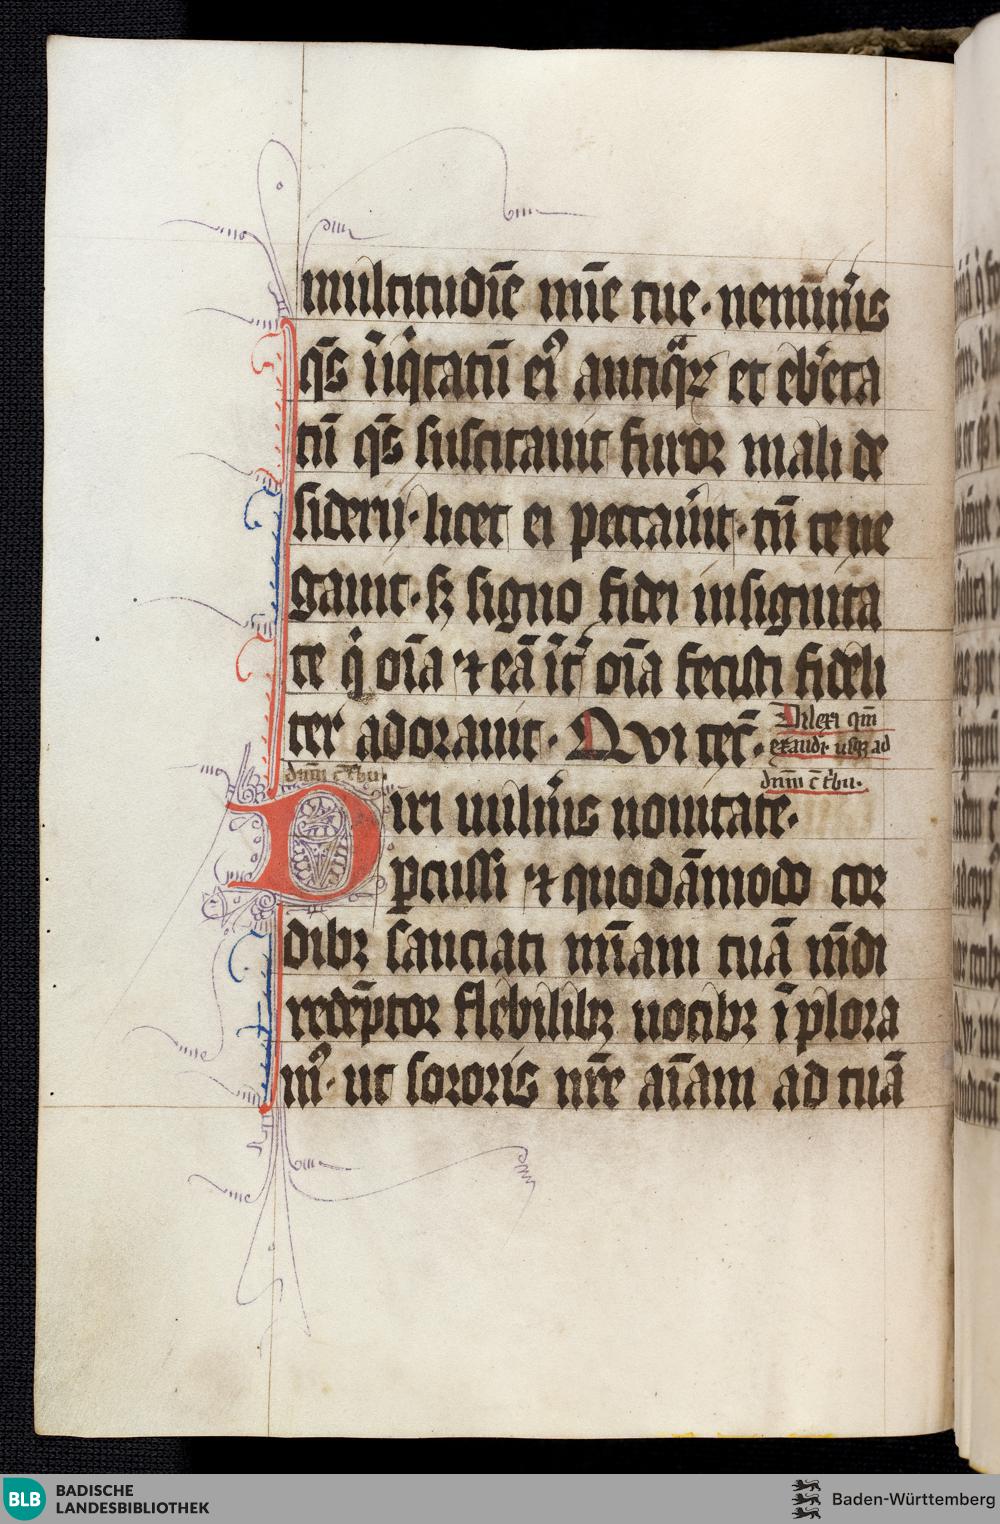 multitudīe mīe tue · neminīis
q̄s īīq̄tatū ei᷒ antiqᷓꝝ et eb͛eta
tū q̄s suscitauit furor mali de
siderii · licet ei peccauīt · tn̄ te ne
gauit · sꝫ signo fidei insignita
te q̇ oīa ⁊ eā īt͛ oīa fecisti fideli
ter adorauit · Qui tec̄ · Dilexi qm̄
exaudi᷒ usqꝫ ad
dnm̄ c̄ t͛bu · dnm̄ c̄ t͛bu ·
Diri uuln͛is nouitate ·
ꝑcussi ⁊ quodāmodo cor
dibꝫ sauciati mīam tuā mūdi
redēptor flebilibꝫ uocibꝫ īplora
m᷒ · ut sororis nr̄e aīam ad tuā
BLB BADISCHE
LANDESBIBLIOTHEK
Baden-Württemberg